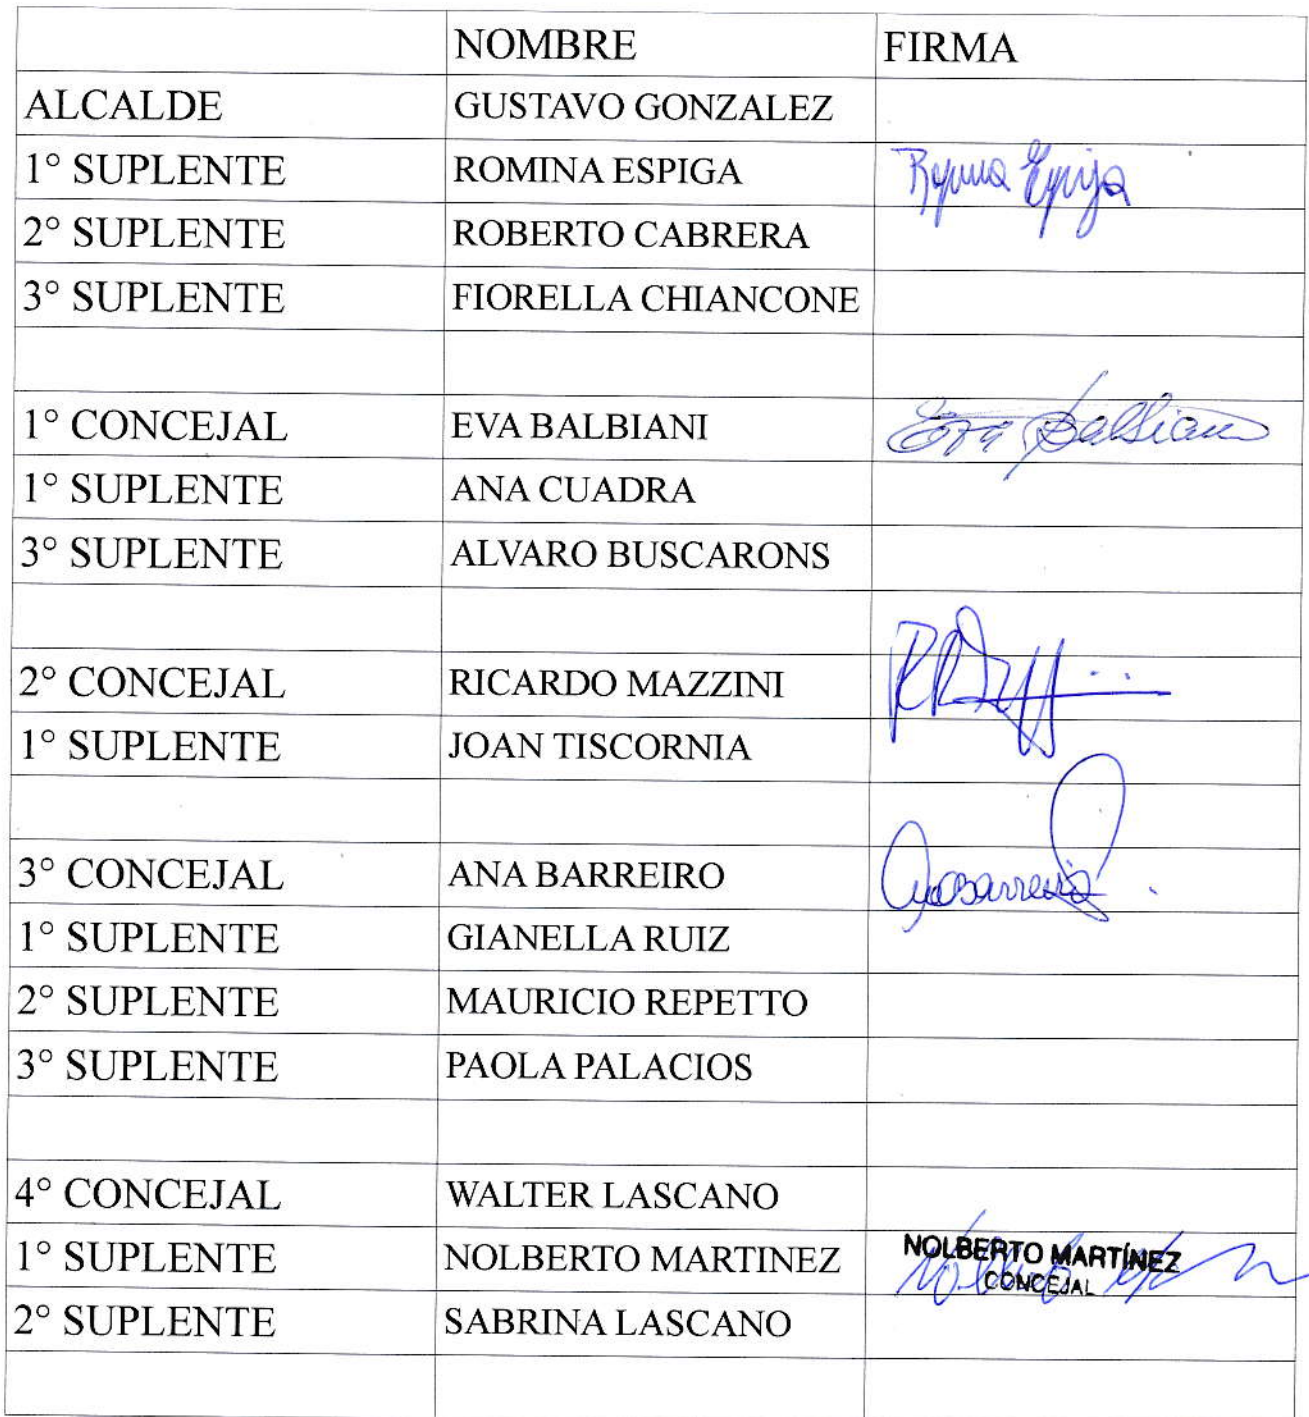 NOMBRE FIRMA
ALCALDE GUSTAVO GONZALEZ
1° SUPLENTE ROMINA ESPIGA Romina Espiga
2° SUPLENTE ROBERTO CABRERA
3° SUPLENTE FIORELLA CHIANCONE
1° CONCEJAL EVA BALBIANI Eva Balbiani
1° SUPLENTE ANA CUADRA
3° SUPLENTE ALVARO BUSCARONS
2° CONCEJAL RICARDO MAZZINI
1° SUPLENTE JOAN TISCORNIA
3° CONCEJAL ANA BARREIRO Ana Barreiro
1° SUPLENTE GIANELLA RUIZ
2° SUPLENTE MAURICIO REPETTO
3° SUPLENTE PAOLA PALACIOS
4° CONCEJAL WALTER LASCANO
1° SUPLENTE NOLBERTO MARTINEZ NOLBERTO MARTÍNEZ
CONCEJAL
2° SUPLENTE SABRINA LASCANO